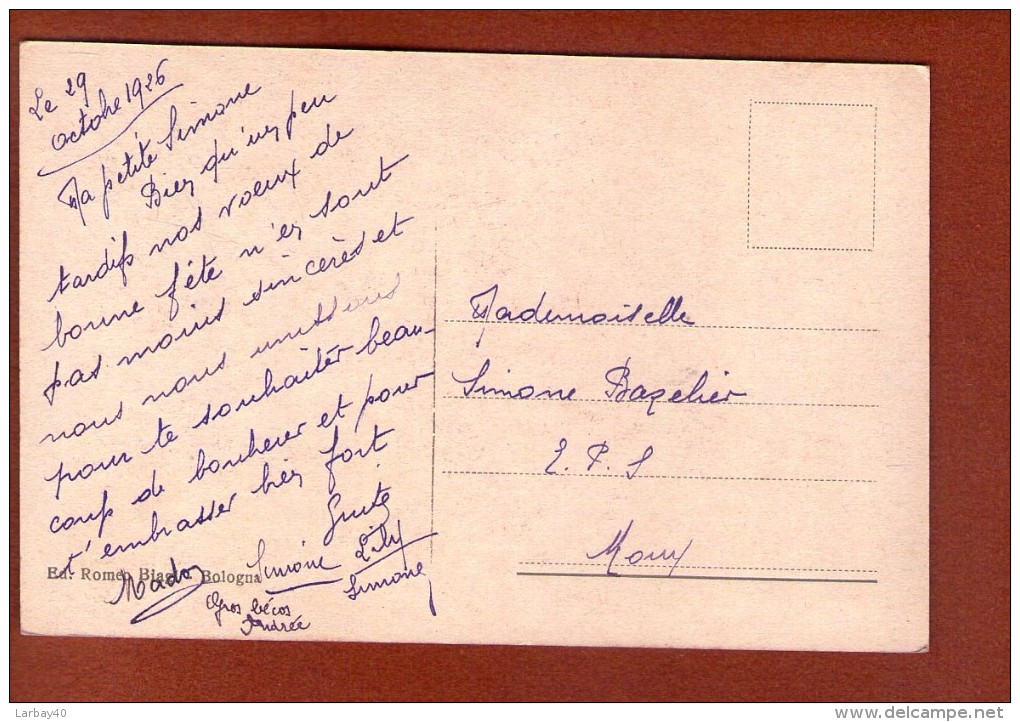 Le 29
octobre 1926
Ma petite Simone
Bien qu'un peu
tardifs nos voeux de
bonne fête n'en sont
pas moins sincères et
nous nous unissons
pour te souhaiter beau-
coup de bonheur et pour
t'embrasser bien fort
Guite
Simone Lily
Mado Simone
Gros bécos
Andrée
Ed. Romeo Biagi. Bologna
Mademoiselle
Simone Bazelier
E. P. S
Mouy
Larbay40
www.delcampe.net